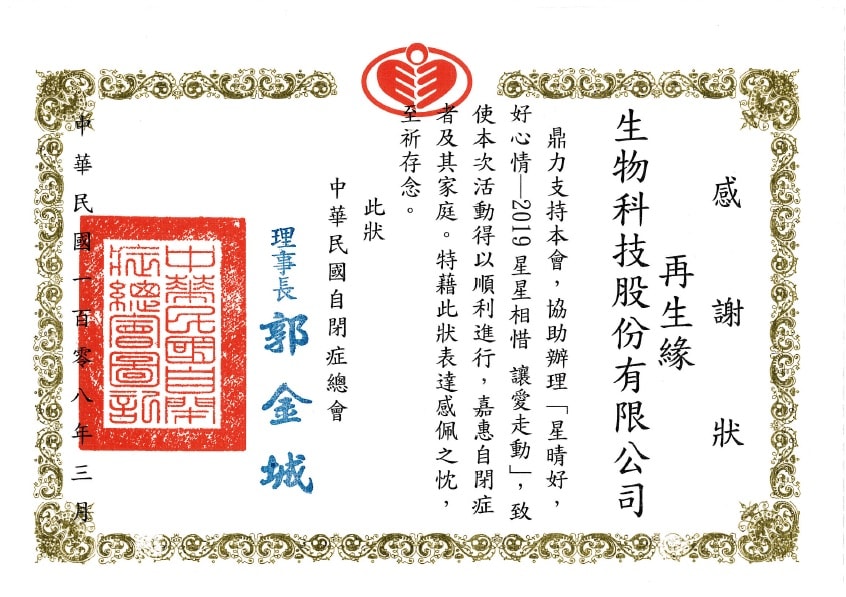 感謝狀
再生緣
生物科技股份有限公司
鼎力支持本會，協助辦理「星晴好，
好心情—2019 星星相惜 讓愛走動」，致
使本次活動得以順利進行，嘉惠自閉症
者及其家庭。特藉此狀表達感佩之忱，
至祈存念。
此狀
中華民國自閉症總會
理事長 郭金城
中華民國自閉
症總會圖記
中華民國一百零八年三月